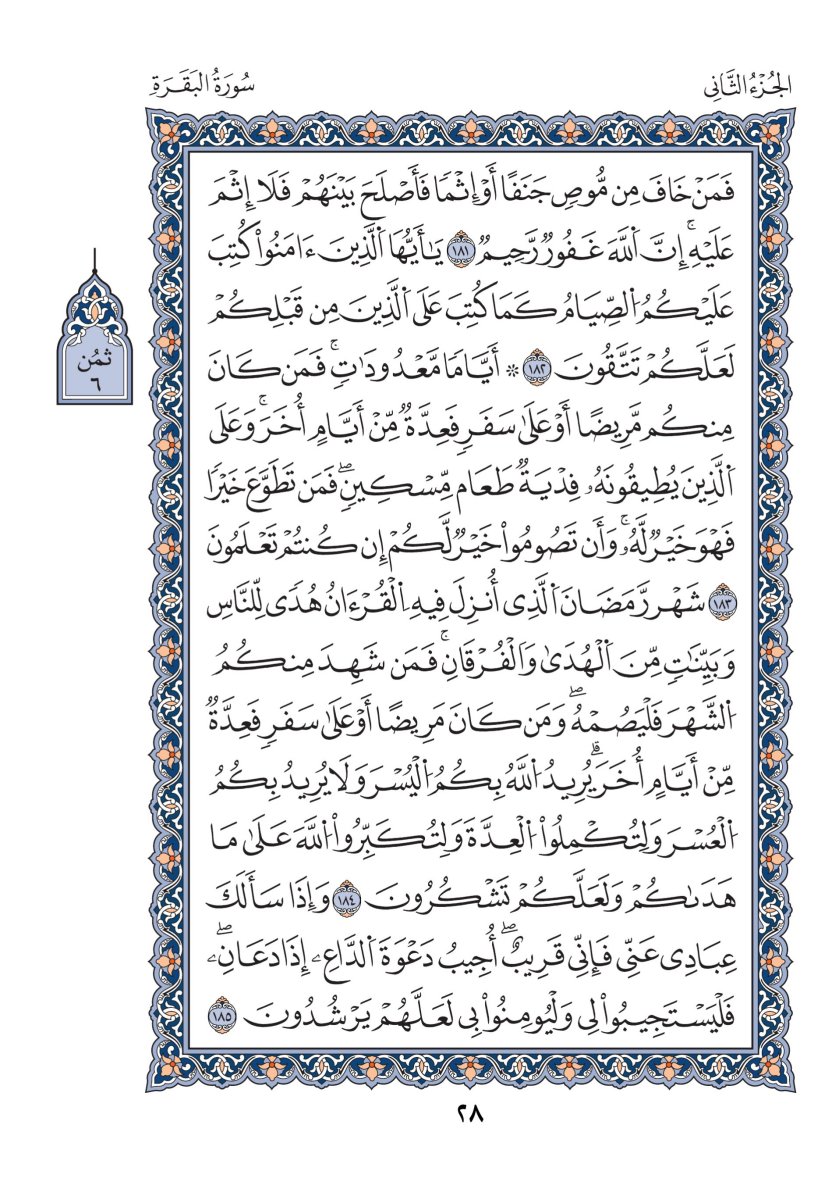 الجُزْءُ الثَّانِي
سُورَةُ البَقَرَةِ
فَمَنْ خَافَ مِن مُّوصٍ جَنَفًا أَوْ إِثْمًا فَأَصْلَحَ بَيْنَهُمْ فَلَا إِثْمَ
عَلَيْهِۚ إِنَّ اَ۬للَّهَ غَفُورٌ رَّحِيمٌ ١٨١ يَٰأَيُّهَا اَ۬لَّذِينَ ءَامَنُواْ كُتِبَ
عَلَيْكُمُ اُ۬لصِّيَامُ كَمَا كُتِبَ عَلَى اَ۬لَّذِينَ مِن قَبْلِكُمْ
لَعَلَّكُمْ تَتَّقُونَ ١٨٢ ۞ أَيَّامًا مَّعْدُودَٰتٍۚ فَمَن كَانَ
مِنكُم مَّرِيضًا أَوْ عَلَىٰ سَفَرٍ فَعِدَّةٌ مِّنْ أَيَّامٍ أُخَرَۚ وَعَلَى
اَ۬لَّذِينَ يُطِيقُونَهُۥ فِدْيَةٌ طَعَام مِّسْكِينٍۖ فَمَن تَطَوَّعَ خَيْرًا
فَهْوَ خَيْرٌ لَّهُۥۚ وَأَن تَصُومُواْ خَيْرٌ لَّكُمْ إِن كُنتُمْ تَعْلَمُونَ
١٨٣ شَهْر رَّمَضَانَ اَ۬لَّذِي أُنزِلَ فِيهِ اِ۬لْقُرْءَانُ هُدًى لِّلنَّاسِ
وَبَيِّنَٰتٍ مِّنَ اَ۬لْهُدَىٰ وَالْفُرْقَانِۚ فَمَن شَهِدَ مِنكُمُ
اُ۬لشَّهْرَ فَلْيَصُمْهُۖ وَمَن كَانَ مَرِيضًا أَوْ عَلَىٰ سَفَرٍ فَعِدَّةٌ
مِّنْ أَيَّامٍ أُخَرَۗ يُرِيدُ اُ۬للَّهُ بِكُمُ اُ۬لْيُسْرَ وَلَا يُرِيدُ بِكُمُ
اُ۬لْعُسْرَ وَلِتُكْمِلُواْ اُ۬لْعِدَّةَ وَلِتُكَبِّرُواْ اُ۬للَّهَ عَلَىٰ مَا
هَدَىٰكُمْ وَلَعَلَّكُمْ تَشْكُرُونَ ١٨٤ وَإِذَا سَأَلَكَ
عِبَادِي عَنِّي فَإِنِّي قَرِيبٌۖ أُجِيبُ دَعْوَةَ اَ۬لدَّاعِۦ إِذَا دَعَانِۦۖ
فَلْيَسْتَجِيبُواْ لِي وَلْيُومِنُواْ بِي لَعَلَّهُمْ يَرْشُدُونَ ١٨٥
ثمُن
٦
٢٨